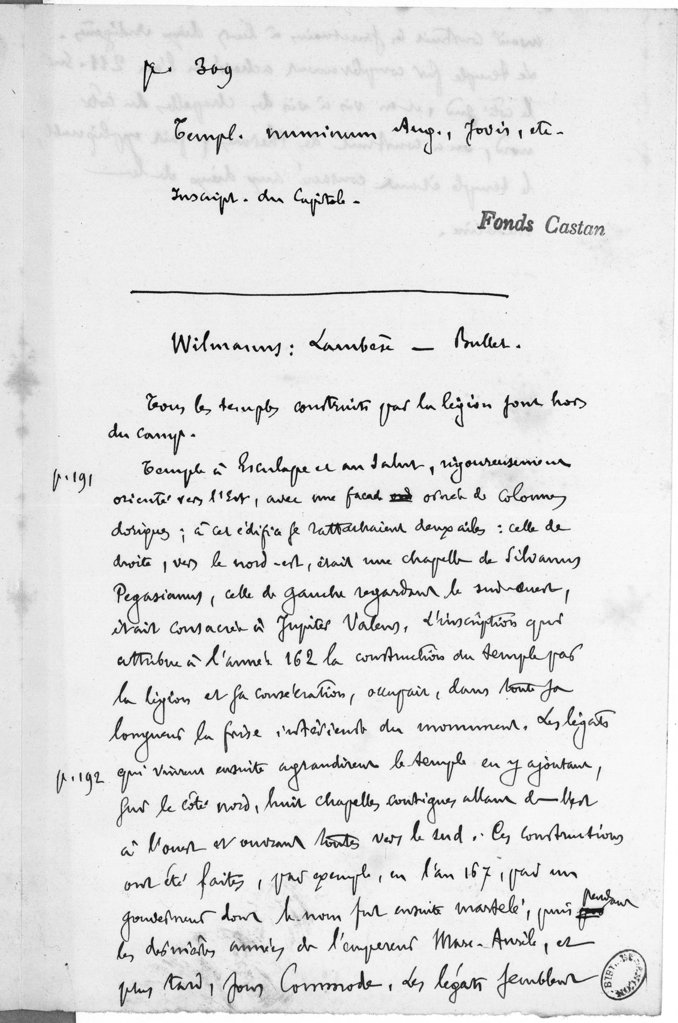 p. 309
Templ. numinum Aug., Jovis, etc.
Inscript. du Capitole.
Fonds Castan
Wilmanns : Lambèse — Bullet.
Tous les temples construits par la légion sont hors
du camp.
p. 191
Temple à Esculape et au Salut, rigoureusement
orienté vers l'Est, avec une façade ornée de colonnes
doriques ; à cet édifice se rattachaient deux ailes : celle de
droite, vers le nord-est, était une chapelle de Silvanus
Pegasianus, celle de gauche regardant le sud-ouest,
était consacrée à Jupiter Valens. L'inscription qui
attribue à l'année 162 la construction du temple par
la légion et sa consécration, occupait, dans toute sa
longueur la frise intérieure du monument. Les légats
p. 192
qui vinrent ensuite agrandirent le temple en y ajoutant,
sur le côté nord, huit chapelles contigues allant de l'est
à l'ouest et ouvrant toutes vers le sud. Ces constructions
ont été faites, par exemple, en l'an 167, par un
gouverneur dont le nom fut ensuite martelé, puis pendant
les dernières années de l'empereur Marc-Aurèle, et
plus tard, sous Commode. Les légats semblent